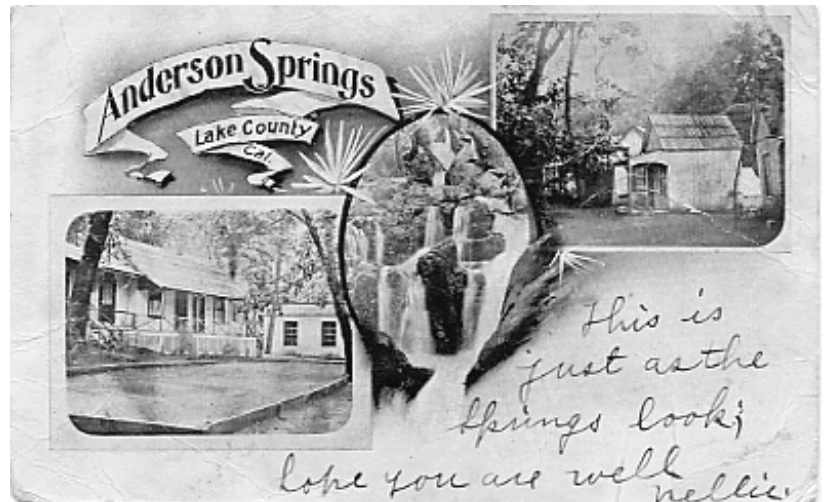 Anderson Springs
Lake County
Cal.
This is
just as the
Springs look;
hope you are well
Nellie.